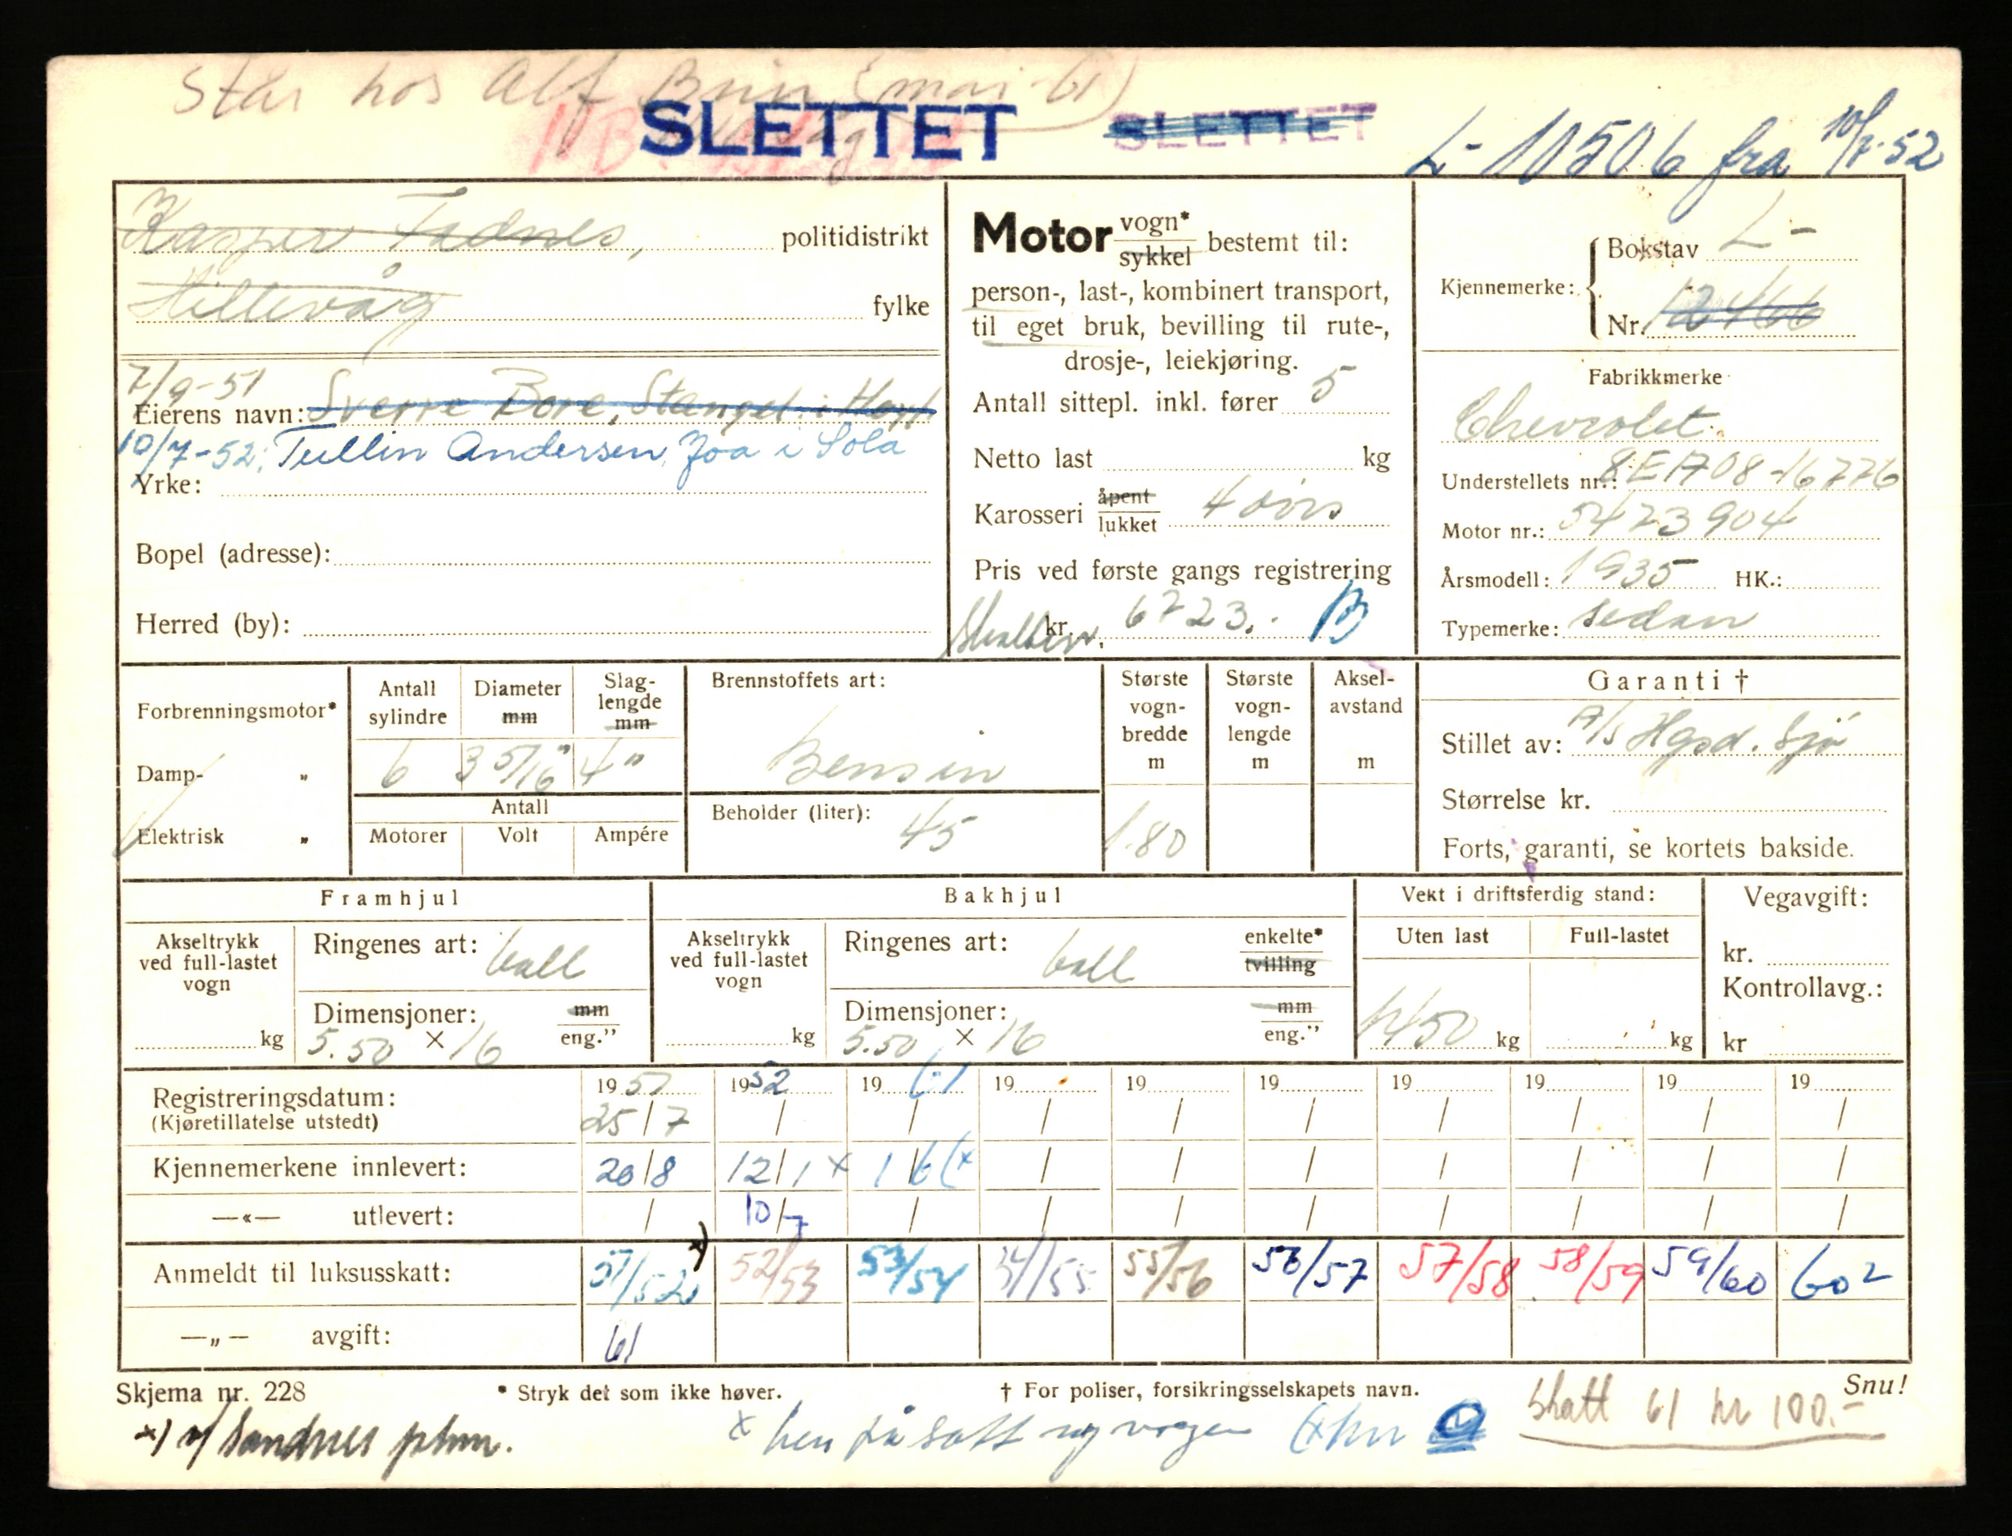 Står hos Alf (mai-61)
SLETTET SLETTET
L-10506 fra 10/7-52
Kasper Tednes, politidistrikt
Hillevåg fylke
7/9-51
Eierens navn: Sverre Bore, Stangel. i Høyl.
10/7-52: Tullin Andersen, Joa i Sola
Yrke:
Bopel (adresse):
Herred (by):
Motor vogn* sykkel bestemt til:
person-, last-, kombinert transport,
til eget bruk, bevilling til rute-,
drosje-, leiekjøring.
Antall sittepl. inkl. fører 5
Netto last kg
Karosseri åpent lukket 4 dørs
Pris ved første gangs registrering
kr. 6723.- B
Kjennemerke: Bokstav L-
Nr. 12466
Fabrikkmerke
Chevrolet.
Understellets nr.: 8EA08-16776
Motor nr.: 5423904
Årsmodell: 1935 HK.:
Typemerke: sedan
Forbrenningsmotor*
Damp- „
Elektrisk „
Antall sylindre Diameter mm Slag-lengde mm
6 3 5/16" 4"
Antall
Motorer Volt Ampére
Brennstoffets art:
Bensin
Beholder (liter): 45
Største vogn-bredde m
1.80
Største vogn-lengde m
Aksel-avstand m
Garanti †
Stillet av: A/S Hgsd. Sjø
Størrelse kr.
Forts, garanti, se kortets bakside.
Framhjul
Akseltrykk ved full-lastet vogn kg
Ringenes art: ball
Dimensjoner: mm
5.50 × 16 eng."
Bakhjul
Akseltrykk ved full-lastet vogn kg
Ringenes art: ball enkelte* tvilling
Dimensjoner: mm
5.50 × 16 eng."
Vekt i driftsferdig stand:
Uten last Full-lastet
1450 kg kg
Vegavgift:
kr.
Kontrollavg.:
kr
Registreringsdatum: 1951 1952 1961 19 19 19 19 19 19 19
(Kjøretillatelse utstedt) 25/7 / / / / / / / / /
Kjennemerkene innlevert: 20/8 12/1 x 1/6 (x / / / / / / /
—«— utlevert: / 10/7 / / / / / / / /
Anmeldt til luksusskatt: 51/52 x) 52/53 53/54 54/55 55/56 56/57 57/58 58/59 59/60 60 2
—„— avgift: 61
Skjema nr. 228 * Stryk det som ikke høver. † For poliser, forsikringsselskapets navn. Snu!
x) v/ Sandnes pkm.
x hen på satt og vogn
Skatt 61 kr 100.-